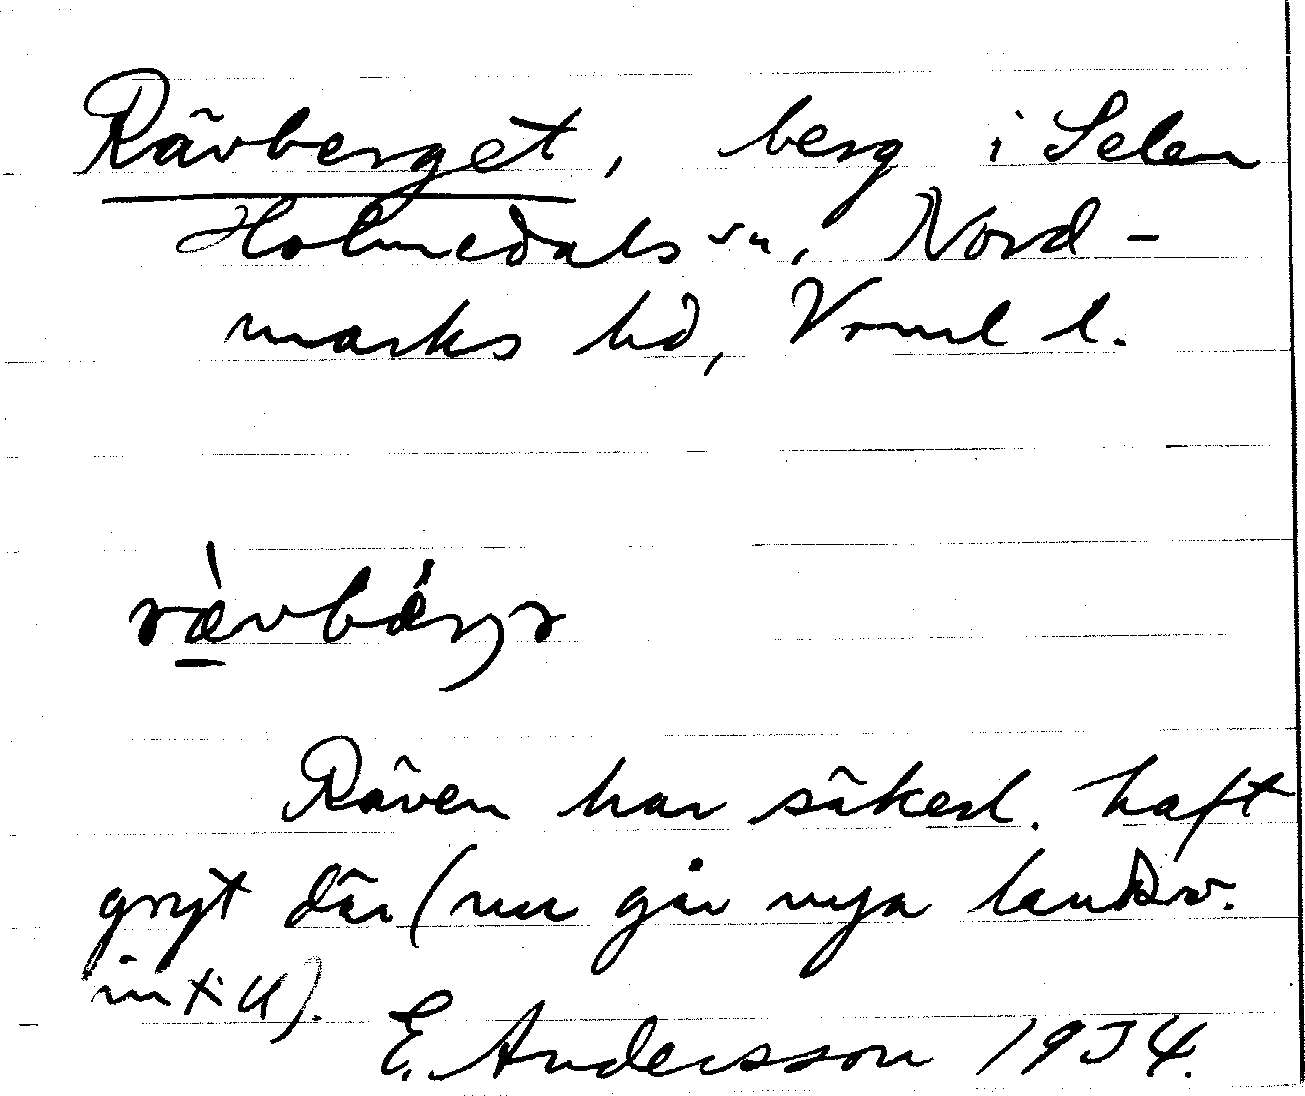 Rävberget, berg i Selen
Holmedals sn, Nord-
marks hd, Vrml l.
rävbärjə
Räven har säkerl. haft
gryt där (nu går nya landsv.
intill).
E. Andersson 1934.